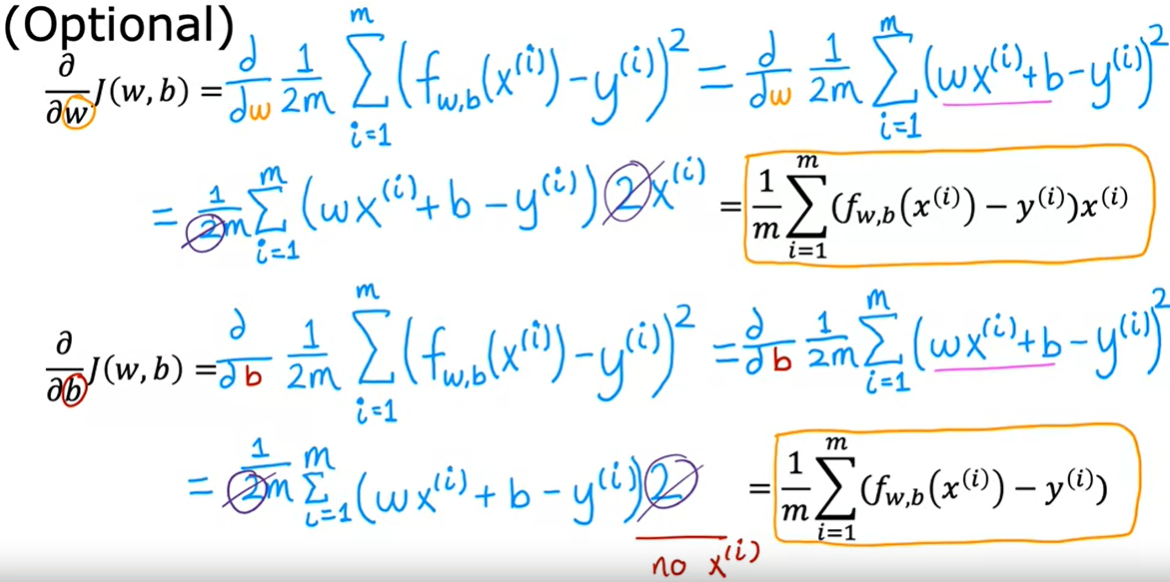 (Optional)
∂/∂w J(w, b) = d/dw 1/2m ∑_{i=1}^{m} (f_{w,b}(x^{(i)}) − y^{(i)})^2 = d/dw 1/2m ∑_{i=1}^{m} (wx^{(i)} + b − y^{(i)})^2
= 1/2m ∑_{i=1}^{m} (wx^{(i)} + b − y^{(i)}) 2 x^{(i)} = 1/m ∑_{i=1}^{m} (f_{w,b}(x^{(i)}) − y^{(i)})x^{(i)}
∂/∂b J(w, b) = ∂/∂b 1/2m ∑_{i=1}^{m} (f_{w,b}(x^{(i)}) − y^{(i)})^2 = ∂/∂b 1/2m ∑_{i=1}^{m} (wx^{(i)} + b − y^{(i)})^2
= 1/2m ∑_{i=1}^{m} (wx^{(i)} + b − y^{(i)}) 2 = 1/m ∑_{i=1}^{m} (f_{w,b}(x^{(i)}) − y^{(i)})
no x^{(i)}